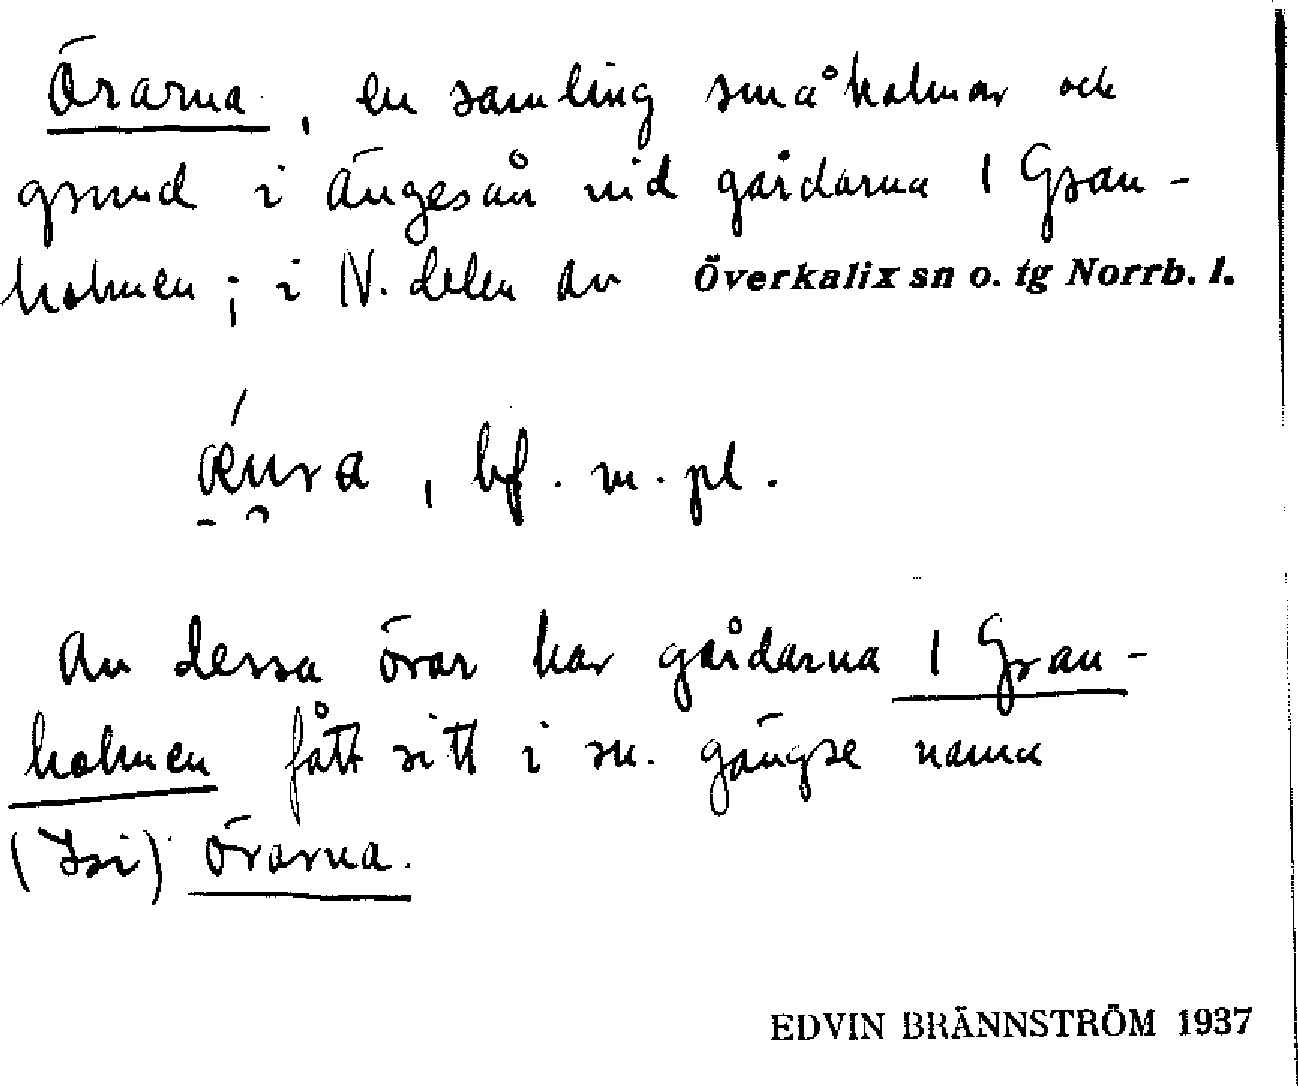 Örarna, en samling småholmar och
grund i Ängesån vid gårdarna 1 Gran-
holmen; i N. delen av Överkalix sn o. tg Norrb. l.
, bf. m. pl.
Av dessa örar har gårdarna 1 Gran-
holmen fått sitt i sn. gängse namn
örarna.
EDVIN BRÄNNSTRÖM 1937